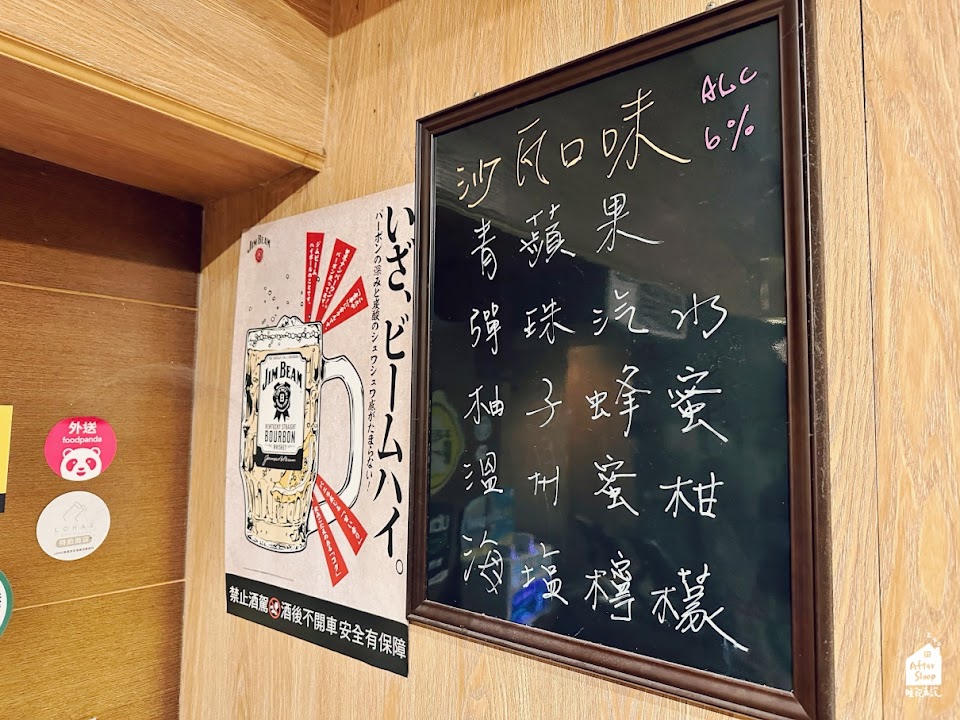 沙瓦口味
ALC
6%
青蘋果
彈珠汽水
柚子蜂蜜
溫州蜜柑
海塩檸檬
JIM BEAM
いざ、ビームハイ。
バーボンの深みと炭酸のシュワシュワ感がたまらない!
JIM BEAM
KENTUCKY STRAIGHT
BOURBON
WHISKEY
禁止酒駕 酒後不開車 安全有保障
外送
foodpanda
LOHAS
特約商店
After
Sleep